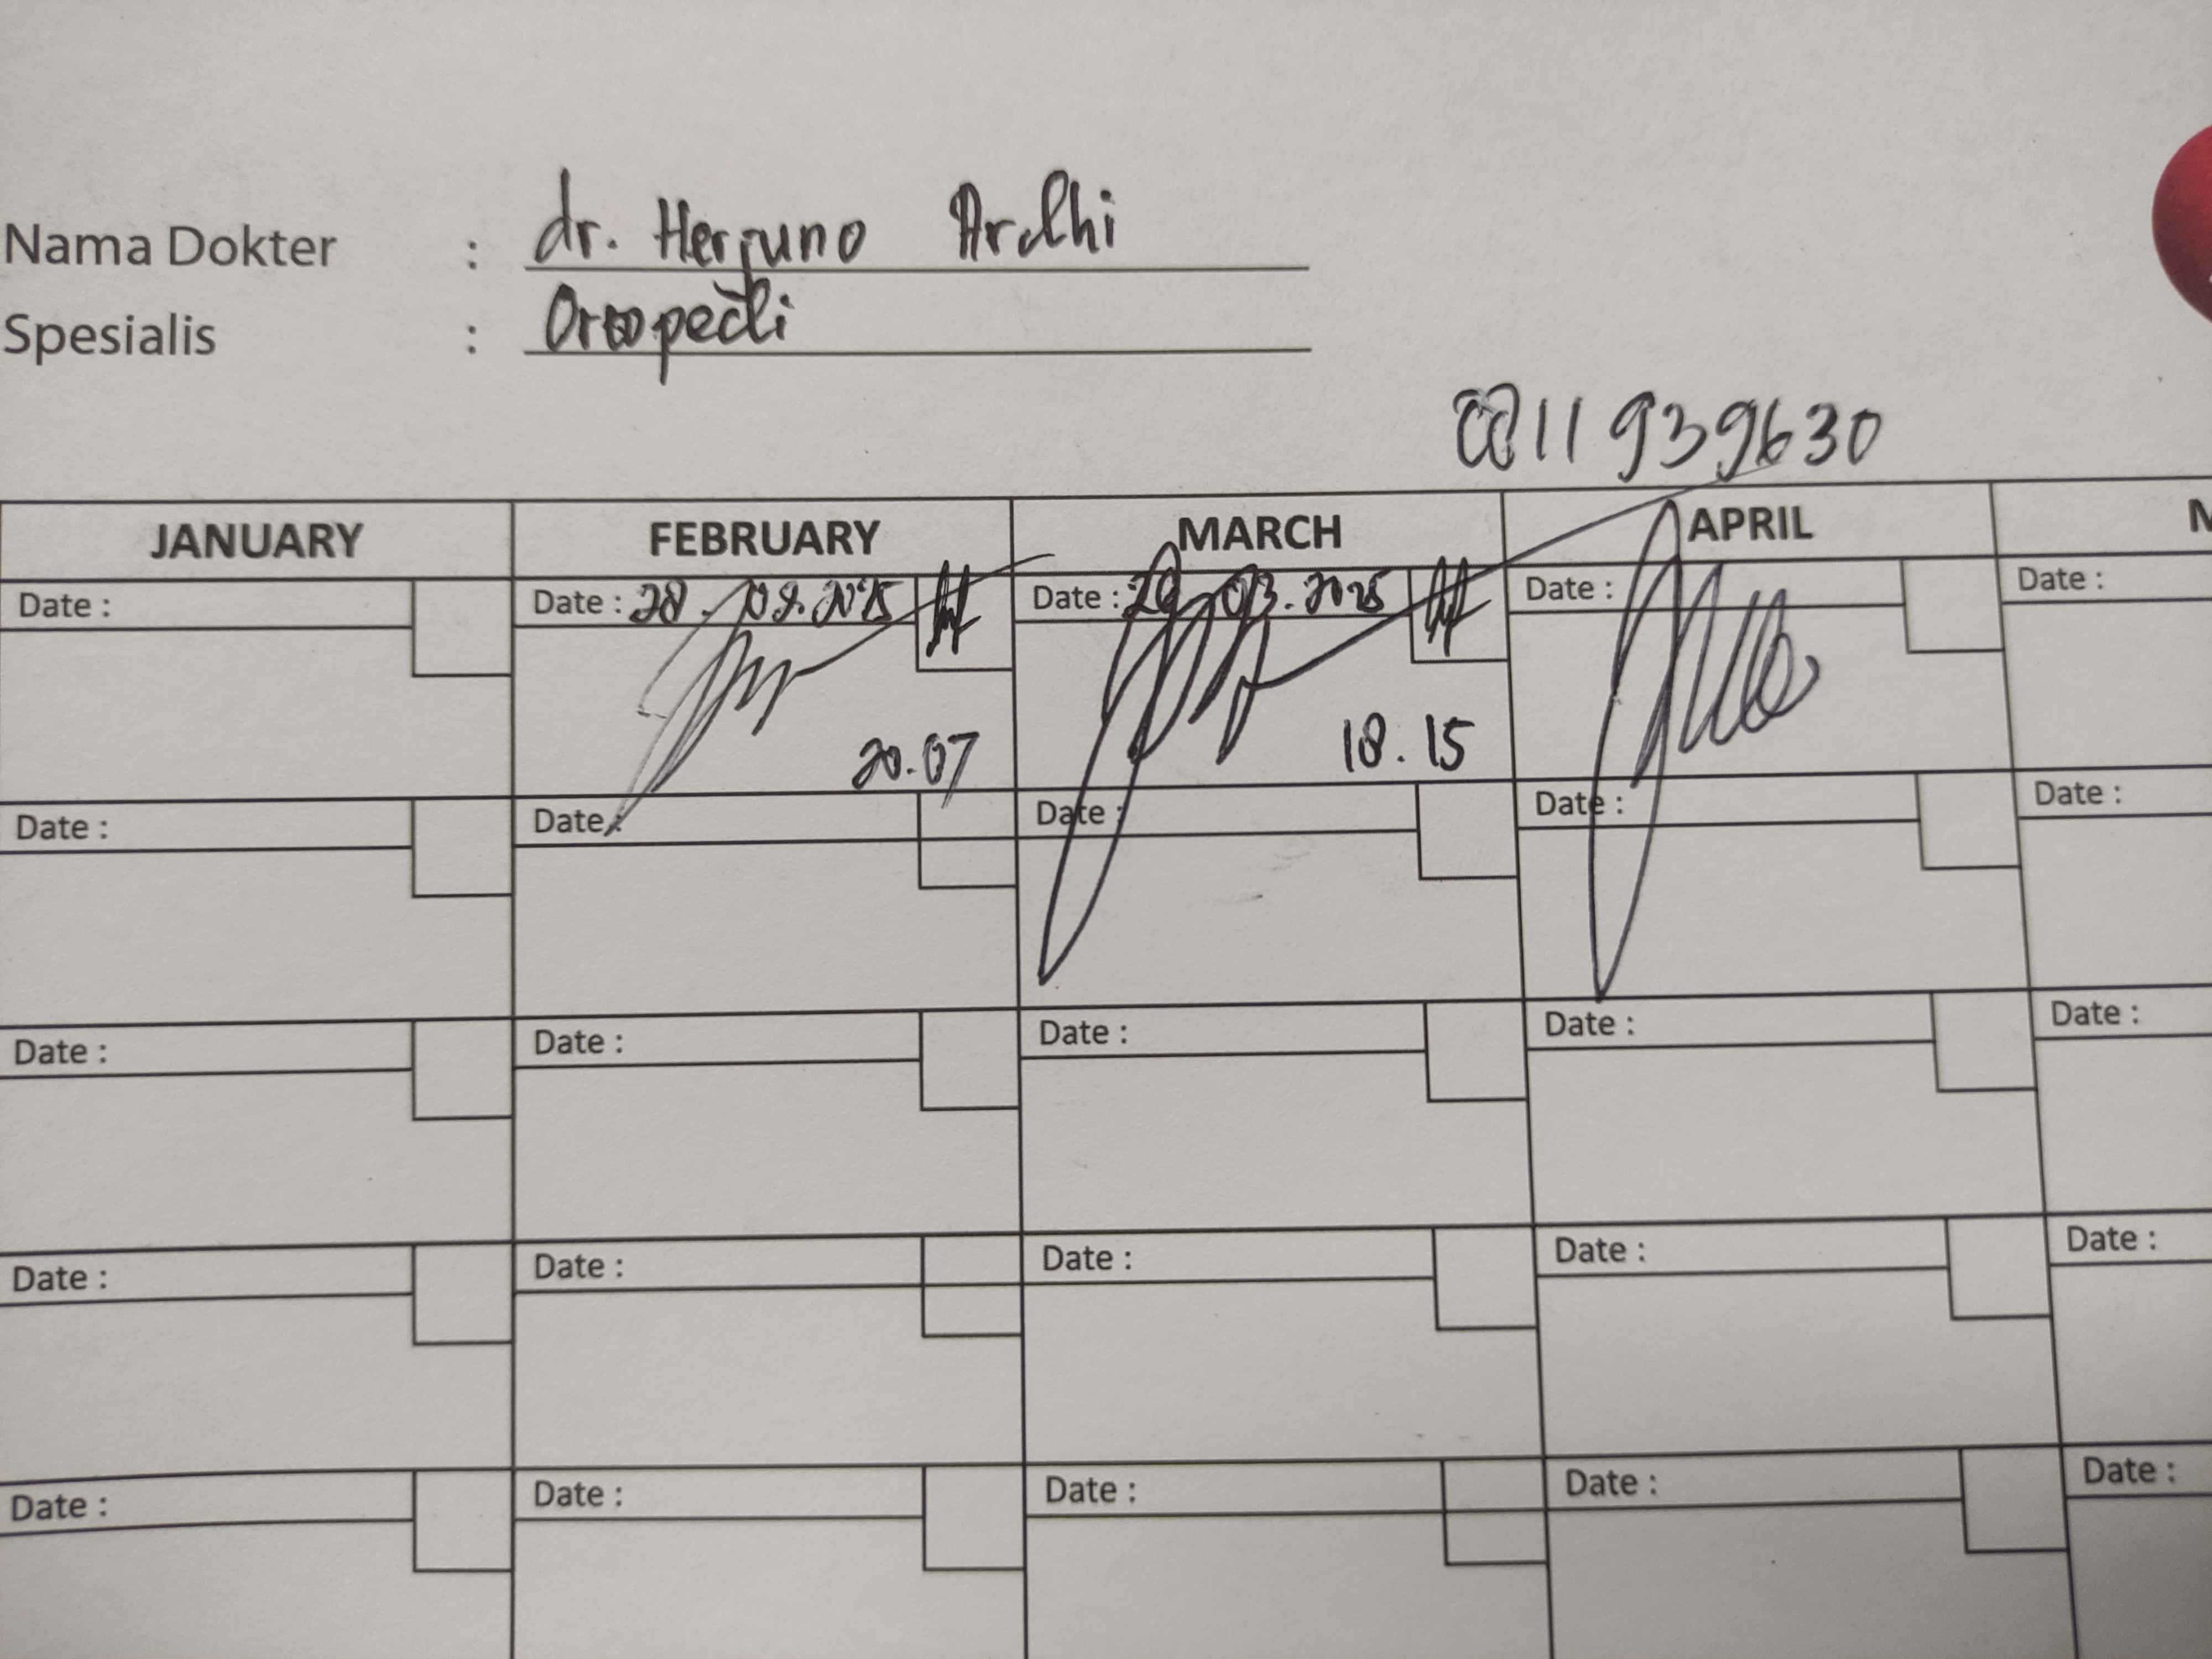 Nama Dokter : dr. Herjuno Ardhi
Spesialis : Ortopedi
0811 939630
JANUARY FEBRUARY MARCH APRIL
Date : Date : 28. 02. 2025 Date : 20 03. 2025 Date : Date :
20.07 18.15
Date : Date : Date : Date : Date :
Date : Date : Date : Date : Date :
Date : Date : Date : Date : Date :
Date : Date : Date : Date : Date :